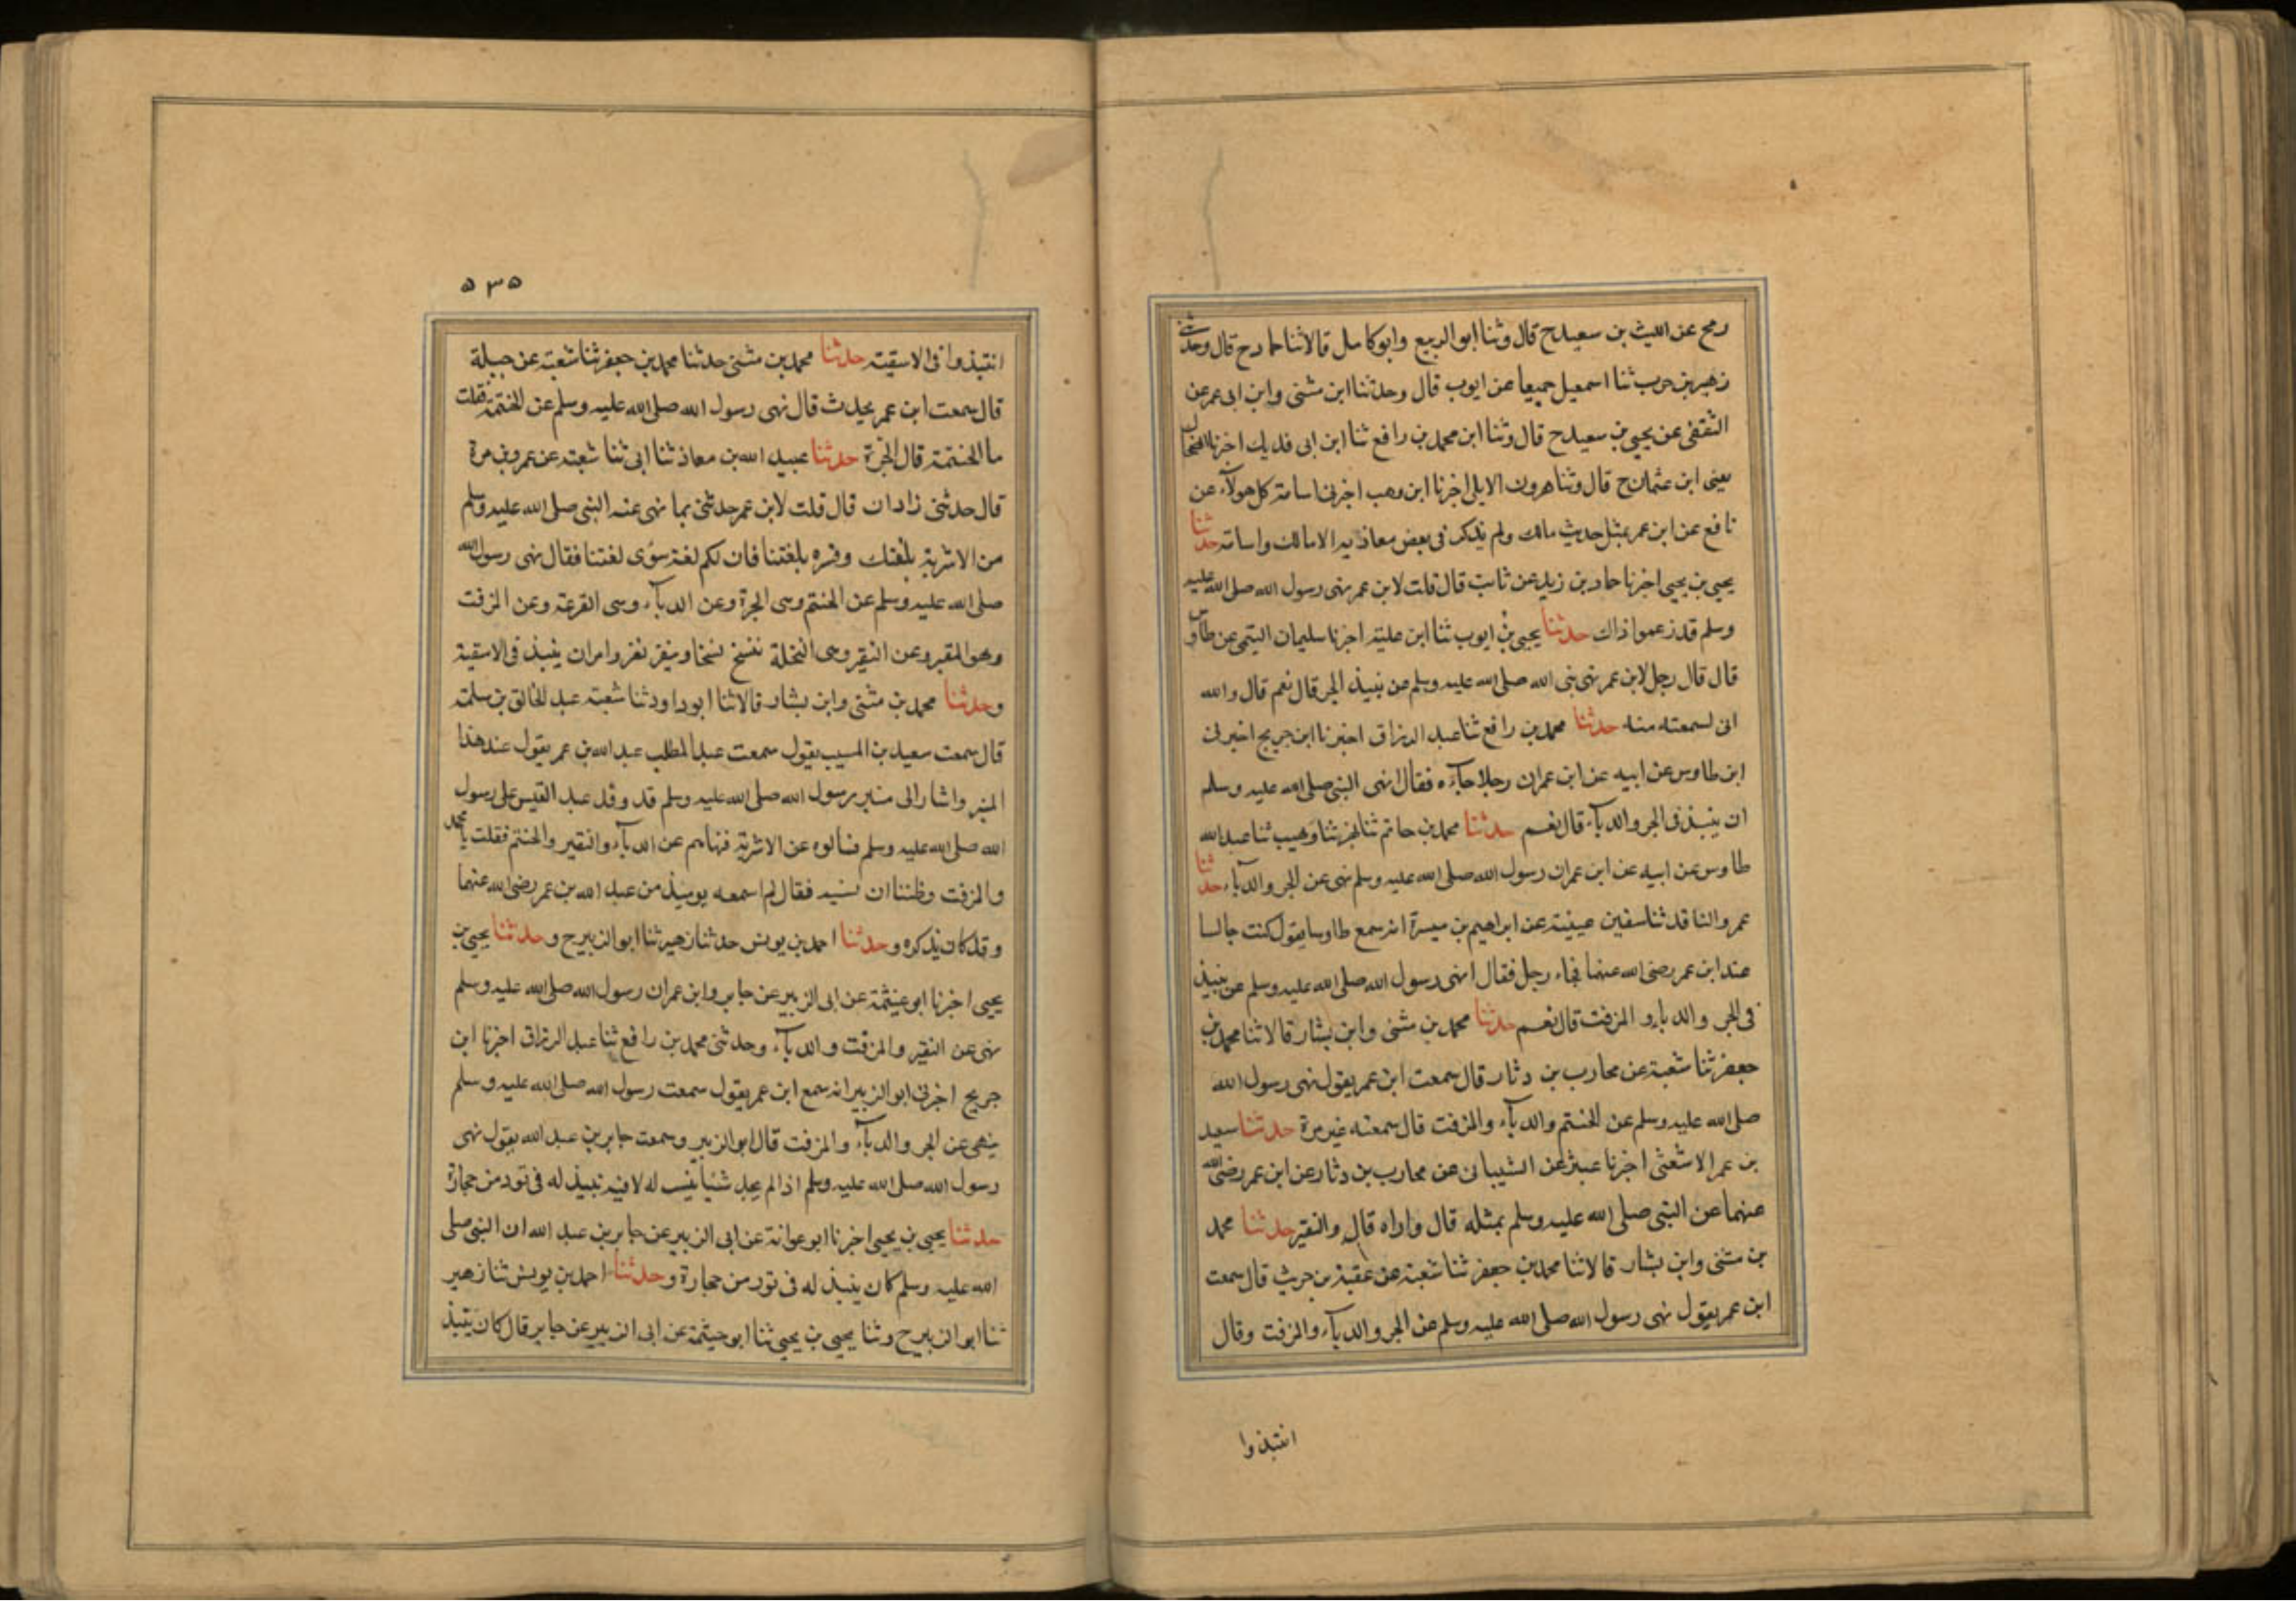 رمح عن الليث بن سعيد ح قال وثنا ابو الربيع وابو كامل قالا ثنا حماد ح قال وحدثنى
زهير بن حرب ثنا اسمعيل جميعا عن ايوب قال وحدثنا ابن مثنى وابن ابى عمر عن
الثقفى عن يحيى بن سعيد ح قال وثنا ابن محمد بن رافع ثنا ابن ابى فديك اخبرنا الضحاك
يعنى ابن عثمان ح قال وثنا هرون الايلى اخبرنا ابن وهب اخبرنى اسامة كل هولآء عن
نافع عن ابن عمر بمثل حديث مالك ولم يذكر فى بعض معاذيه الا مالك واسامة حدثنا
يحيى بن يحيى اخبرنا حماد بن زيد عن ثابت قال قلت لابن عمر نهى رسول الله صلى الله عليه
وسلم قد زعموا ذاك حدثنا يحيى بن ايوب ثنا ابن علية اخبرنا سليمان التيمى عن طاوس
قال قال رجل لابن عمر نهى نبى الله صلى الله عليه وسلم عن نبيذ الجر قال نعم قال والله
انى لسمعته منه حدثنا محمد بن رافع ثنا عبد الرزاق اخبرنا ابن جريج اخبرنى
ابن طاوس عن ابيه عن ابن عمر ان رجلا جآءه فقال انهى النبى صلى الله عليه وسلم
ان ينبذ فى الجر والدبآء قال نعم حدثنا محمد بن حاتم ثنا بهز ثنا وهيب ثنا عبد الله
طاوس عن ابيه عن ابن عمر ان رسول الله صلى الله عليه وسلم نهى عن الجر والدبآء حدثنا
عمرو الناقد ثنا سفين عيينة عن ابراهيم بن ميسرة انه سمع طاوسا يقول كنت جالسا
عند ابن عمر رضى الله عنهما فجاء رجل فقال انهى رسول الله صلى الله عليه وسلم عن نبيذ
فى الجر والدباء والمزفت قال نعم حدثنا محمد بن مثنى وابن بشار قالا ثنا محمد بن
جعفر ثنا شعبة عن محارب بن دثار قال سمعت ابن عمر يقول نهى رسول الله
صلى الله عليه وسلم عن الحنتم والدبآء والمزفت قال سمعته غير مرة حدثنا سعيد
بن عمر الاشعثى اخبرنا عبثر عن الشيبانى عن محارب بن دثار عن ابن عمر رضى الله
عنهما عن النبى صلى الله عليه وسلم بمثله قال واراه قال والنقير حدثنا محمد
بن مثنى وابن بشار قالا ثنا محمد بن جعفر ثنا شعبة عن عقبة بن حريث قال سمعت
ابن عمر يقول نهى رسول الله صلى الله عليه وسلم عن الجر والدبآء والمزفت وقال
انتبذوا
٥٣٥
انتبذوا فى الاسقية حدثنا محمد بن مثنى حدثنا محمد بن جعفر ثنا شعبة عن جبلة
قال سمعت ابن عمر يحدث قال نهى رسول الله صلى الله عليه وسلم عن الحنتمة فقلت
ما الحنتمة قال الجرة حدثنا عبيد الله بن معاذ ثنا ابى ثنا شعبة عن عمرو بن مرة
قال حدثنى زاذان قال قلت لابن عمر حدثنى بما نهى عنه النبى صلى الله عليه وسلم
من الاشربة بلغتك وفسره بلغتنا فان لكم لغة سوى لغتنا فقال نهى رسول الله
صلى الله عليه وسلم عن الحنتم وهى الجرة وعن الدبآء وهى القرعة وعن المزفت
وهو المقير وعن النقير وهى النخلة تنسخ نسخا وينقر نقر وامر ان ينبذ فى الاسقية
وحدثنا محمد بن مثنى وابن بشار قالا ثنا ابو داود ثنا شعبة عبد الخالق بن سلمة
قال سمعت سعيد بن المسيب يقول سمعت عبد المطلب عبد الله بن عمر يقول عند هذا
المنبر واشار الى منبر رسول الله صلى الله عليه وسلم قد وفد عبد القيس على رسول
الله صلى الله عليه وسلم فسالوه عن الاشربة فنهاهم عن الدبآء والنقير والحنتم فقلت يا محمد
والمزفت وظننا ان نسيه فقال لم اسمعه يوميذ من عبد الله بن عمر رضى الله عنهما
وقد كان يذكره وحدثنا احمد بن يونس حدثنا زهير ثنا ابو الزبير ح وحدثنا يحيى بن
يحيى اخبرنا ابو عيثمة عن ابى الزبير عن جابر وابن عمر ان رسول الله صلى الله عليه وسلم
نهى عن النقير والمزفت والدبآء وحدثنى محمد بن رافع ثنا عبد الرزاق اخبرنا ابن
جريج اخبرنى ابو الزبير انه سمع ابن عمر يقول سمعت رسول الله صلى الله عليه وسلم
ينهى عن الجر والدبآء والمزفت قال ابو الزبير وسمعت جابر بن عبد الله يقول نهى
رسول الله صلى الله عليه وسلم اذا لم يجد شئيا له فيه نبيذ له فى تور من حجارة
حدثنا يحيى بن يحيى اخبرنا ابو عوانة عن ابى الزبير عن جابر بن عبد الله ان النبى صلى
الله عليه وسلم كان ينبذ له فى تور من حجارة وحدثنا احمد بن يونس ثنا زهير
ثنا ابو الزبير ح وثنا يحيى بن يحيى ثنا ابو خيثمة عن ابى الزبير عن جابر قال كان ينتبذ